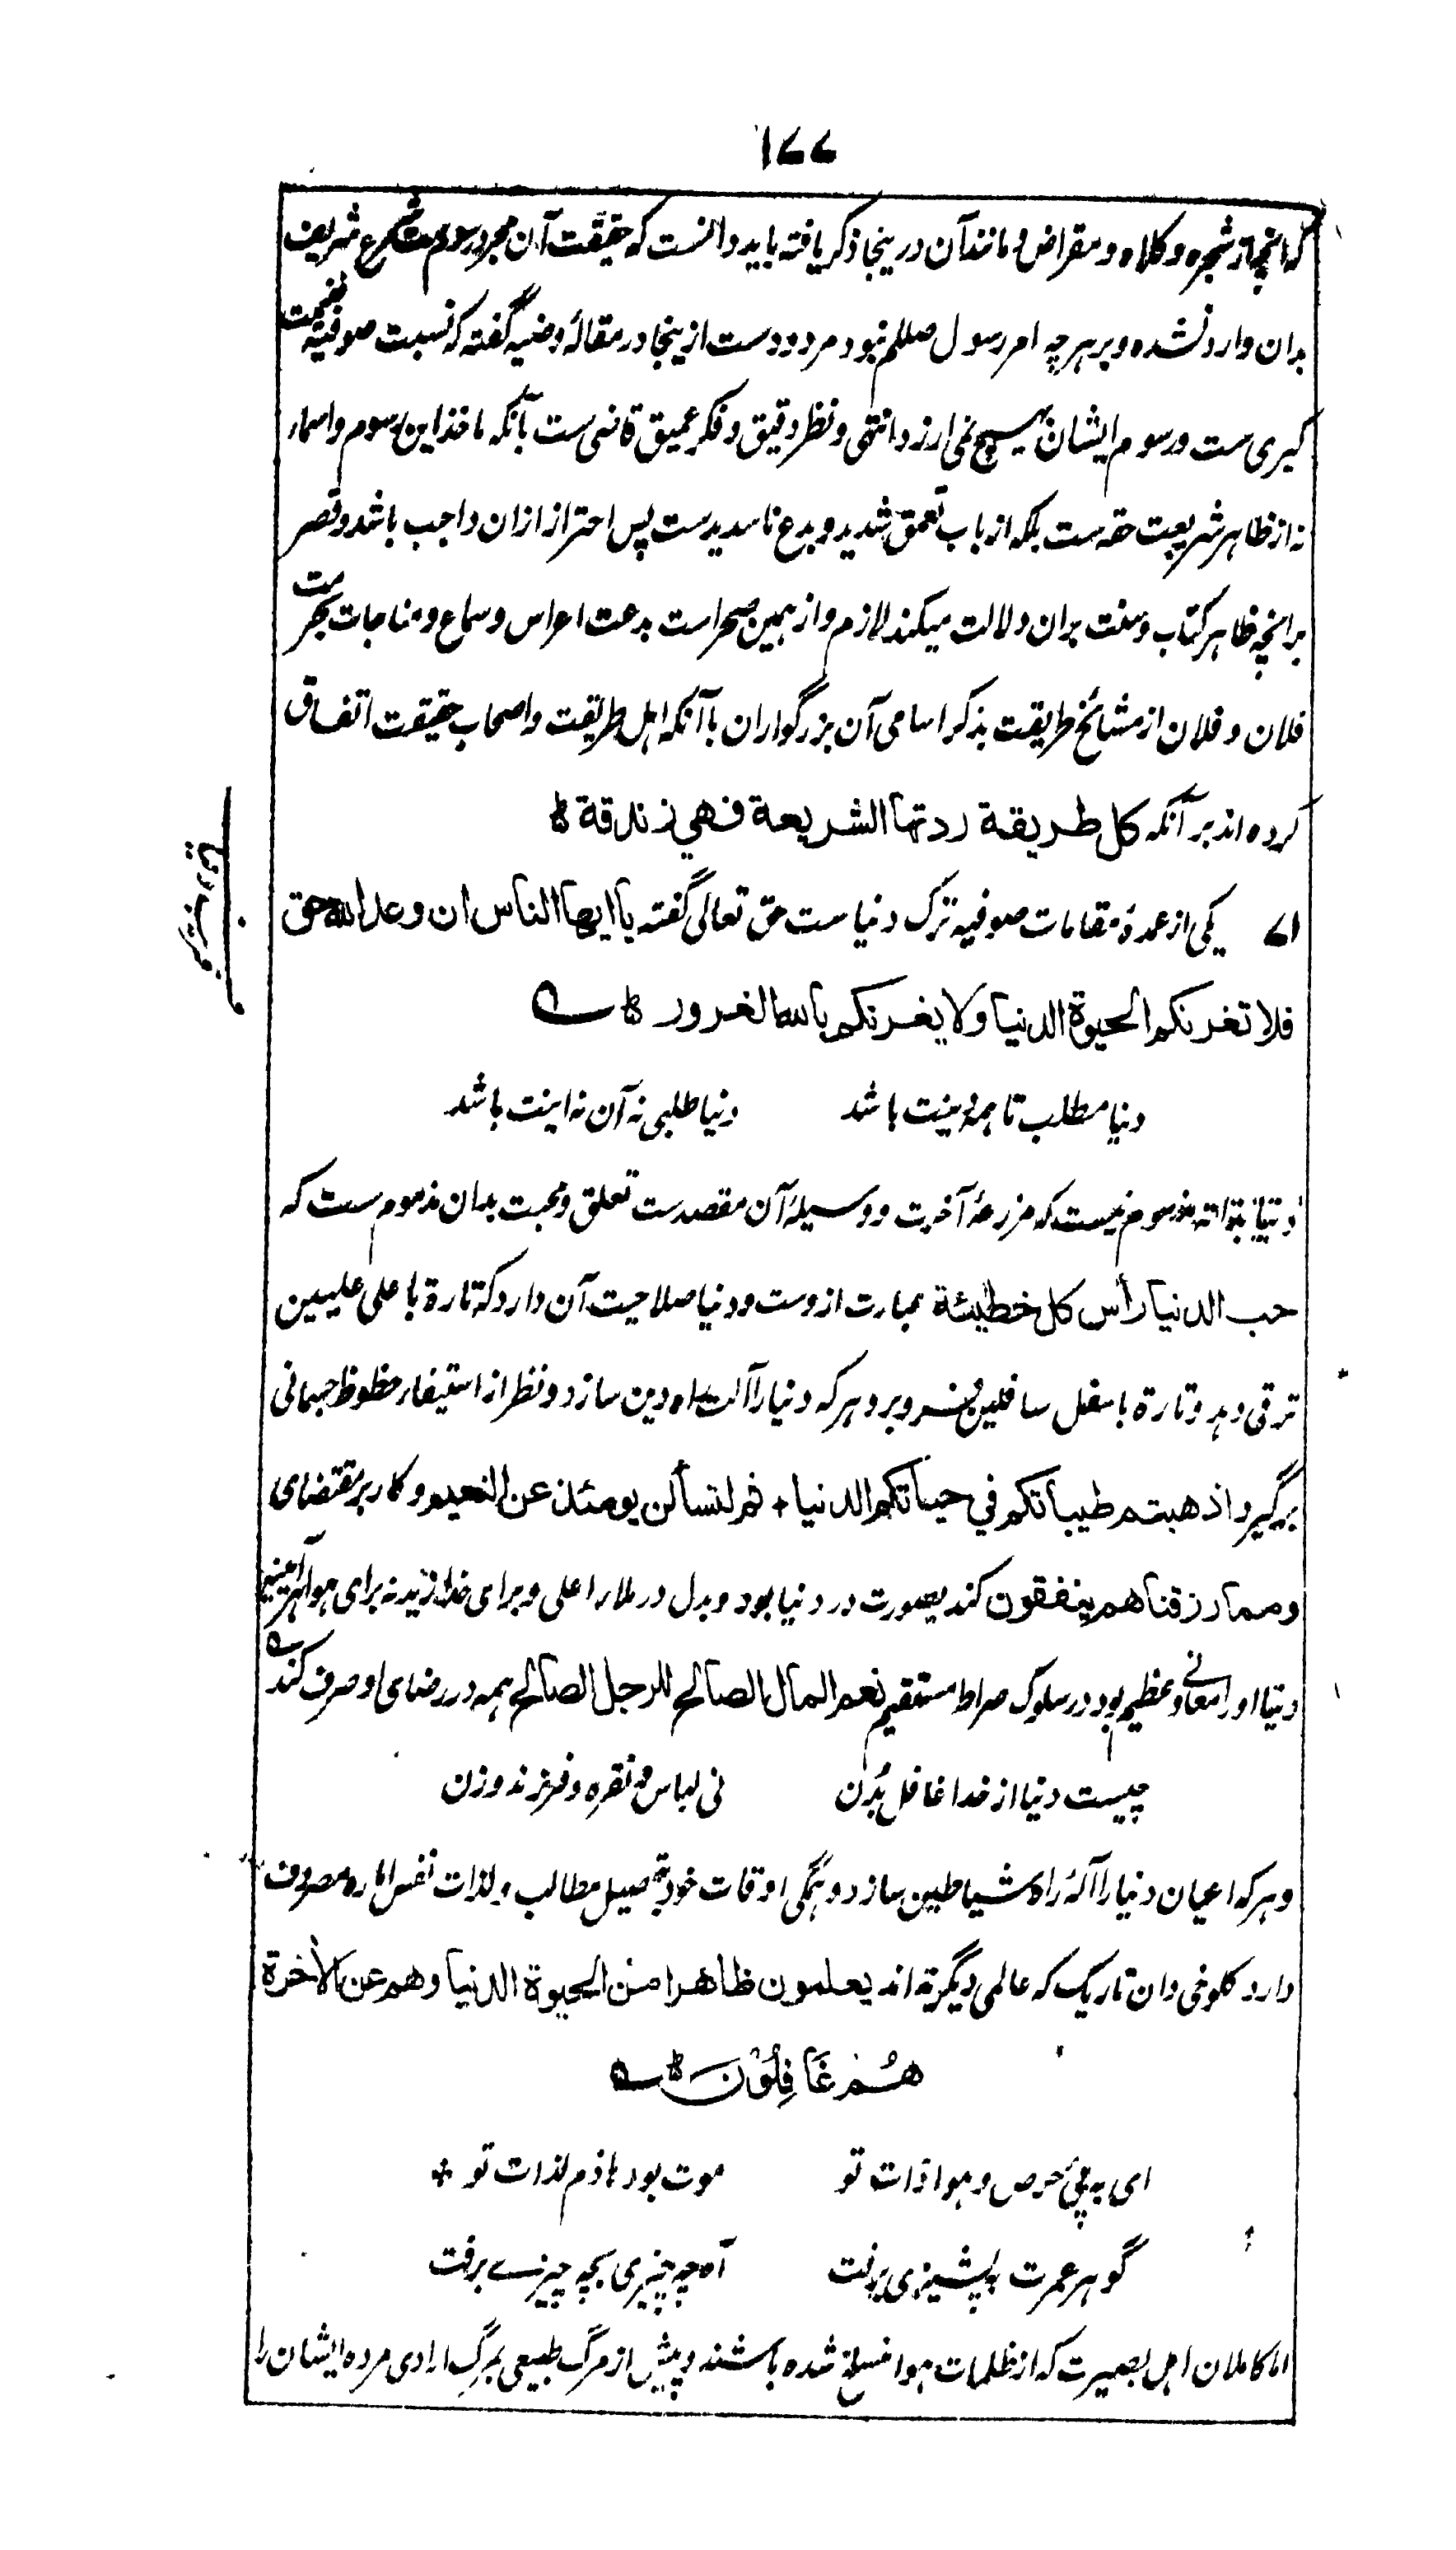 ۱۷۷
که آنچه از شجره و کلاه و مقراض و مانند آن درینجا ذکر یافته باید دانست که حقیقت آن مجرد رسوم ست شرع شریف
بدان وارد نشده و بر هرچه امر رسول صللم نبود مردودست ازینجا در مقالهٔ وضیه گفته که نسبت صوفیه غنیمت
کبری ست و رسوم ایشان بهیچ نمی ارزد انتهی و نظر دقیق و فکر عمیق قاضی ست بآنکه ماخذ این رسوم و اسماء
نه از ظاهر شریعت حقه ست بلکه از باب تعمق شدید و بدع ناسدیدست پس احتراز ازان واجب باشد و قصر
برانچه ظاهر کتاب و سنت بران دلالت میکند لازم و از همین صحراست بدعت اعراس و سماع و مناجات بحرمت
فلان و فلان از مشائخ طریقت بذکر اسامی آن بزرگواران با آنکه اهل طریقت و اصحاب حقیقت اتفاق
کرده اند بر آنکه کل طریقة ردتها الشریعة فهي زندقة
۷۱ یکی از عمدهٔ مقامات صوفیه ترک دنیا ست حق تعالی گفته یا ایها الناس ان وعد الله حق
فلا تغرنکم الحیوة الدنیا ولا یغرنکم بالله الغرور
دنیا مطلب تا همه دینت باشد دنیا طلبی نه آن نه اینت باشد
دنیا بذاته مذموم نیست که مزرعهٔ آخرت و وسیلهٔ آن مقصدست تعلق و محبت بدان مذموم ست که
حب الدنیا رأس کل خطیئة عبارت ازوست و دنیا صلاحیت آن دارد که تارة با علی علیین
ترقی دهد و تارة باسفل سافلین فرو برد هر که دنیا را آلت راه دین سازد و نظر از استیفاء حظوظ جسمانی
برگیرد اذهبتم طیباتکم في حیاتکم الدنیا + ثم لتسألن یومئذ عن النعیم و کار بر مقتضای
ومما رزقناهم ینفقون کند بصورت در دنیا بود و بدل در ملاء اعلی و برای خدا زید نه برای هوا هرآئینه
دنیا او را معاونی عظیم بود در سلوک صراط مستقیم نعم المال الصالح للرجل الصالح همه در رضای او صرف کند
چیست دنیا از خدا غافل بُدن نی لباس و نقره و فرزند و زن
و هر که اعیان دنیا را آلهٔ راه شیاطین سازد و همگی اوقات خود بتحصیل مطالب و لذات نفس اماره مصروف
دارد کلوخی دان تاریک که عالمی دیگر نداند یعلمون ظاهرا من الحیوة الدنیا وهم عن الاخرة
هُم غَافِلُوْنَ
ای به پیٔ حرص و هوا ذات تو موت بود هاذم لذات تو
گوهر عمرت به پشیزی برفت آه چه چیزی بچه چیزے برفت
اما کاملان اهل بصیرت که از ظلمات هوا منسلخ شده باشند و پیش از مرگ طبیعی بمرگ ارادی مرده ایشان را